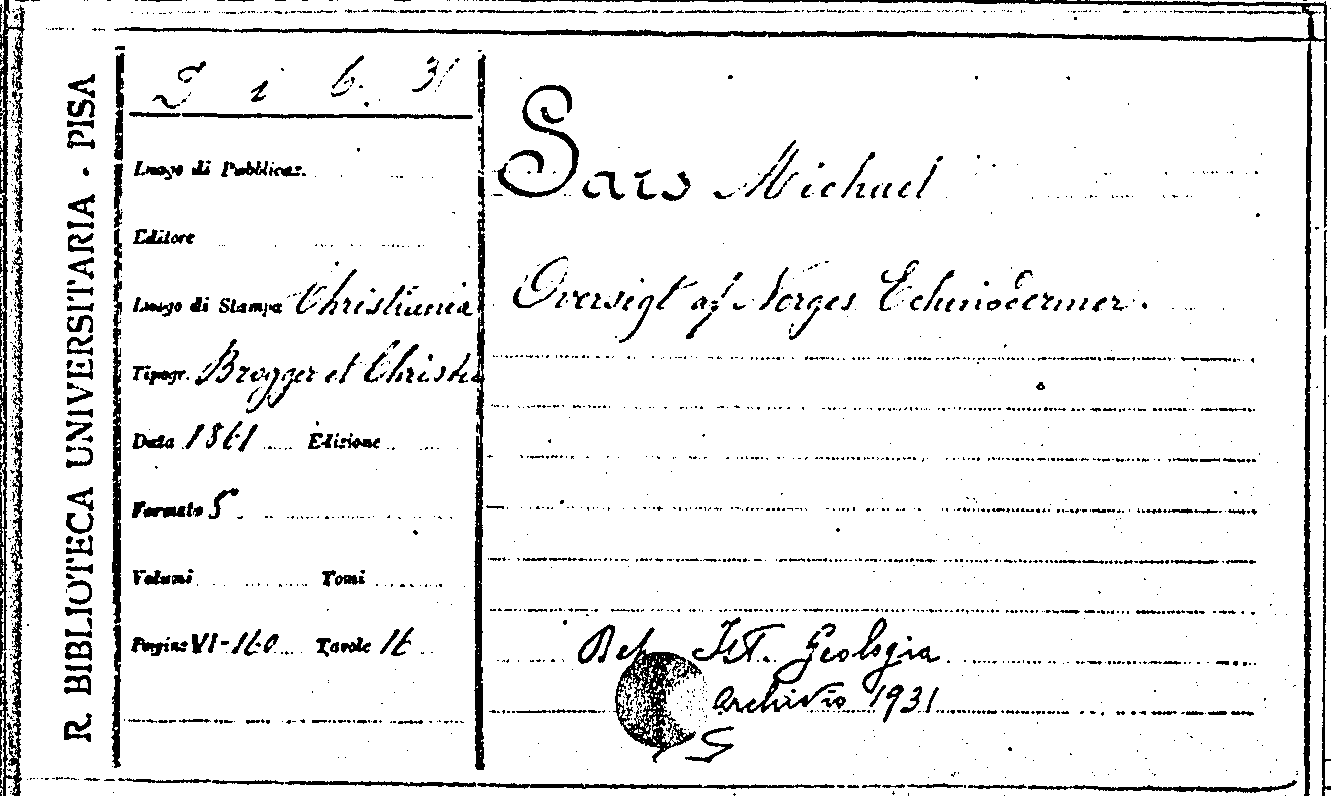 R. BIBLIOTECA UNIVERSITARIA - PISA
I i 6. 31
Luogo di Pubblicaz.
Editore
Luogo di Stampa Christiania
Tipogr. Brögger et Christie
Data 1861 Edizione
Formato
Volumi Tomi
Pagine VI-160 Tavole 16
Sars Michael
Oversigt af Norges Echinodermer.
Dep. Ist. Geologia
Archivio 1931